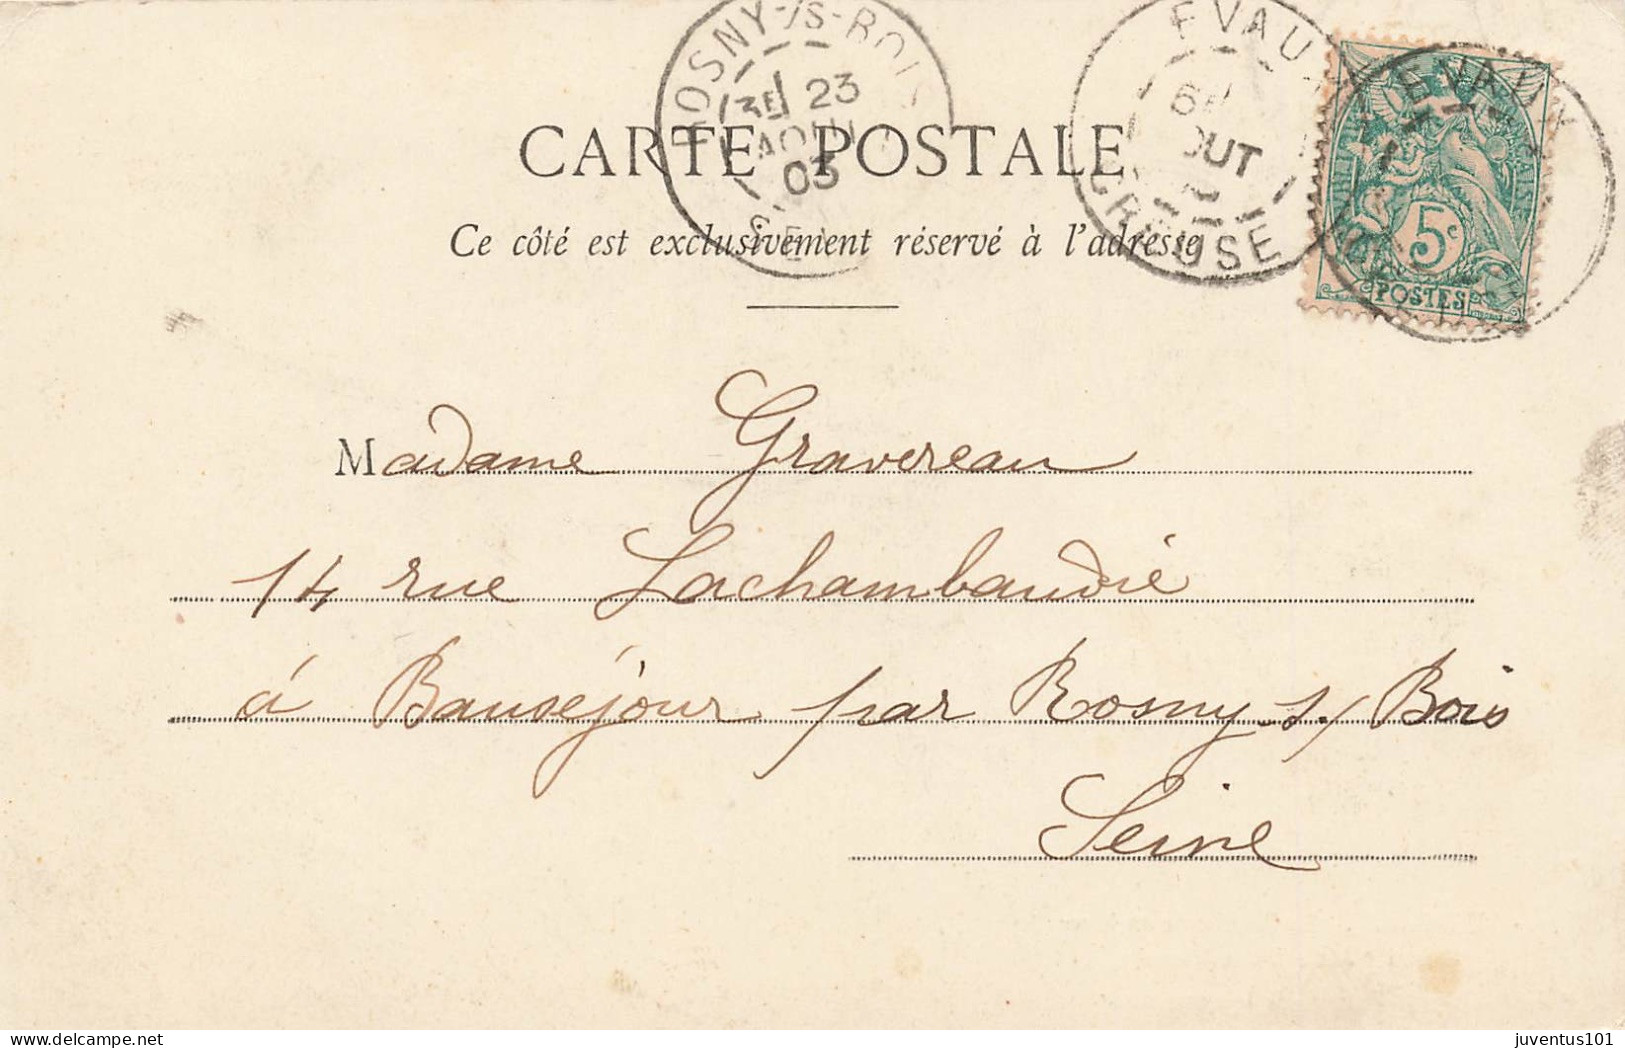 ROSNY-/S-BOIS
3E 23
AOUT
03
EVAUX
CREUSE
5c
POSTES
CARTE POSTALE
Ce côté est exclusivement réservé à l'adresse
Madame Gravereau
14 rue Lachambaudie
à Bauséjour par Rosny s/ Bois
Seine
www.delcampe.net
juventus101